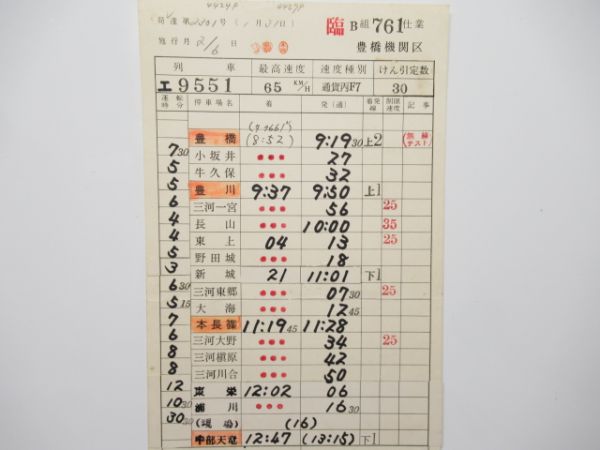 4424レ 4429レ
達第2301号(1月31日) 臨 B組 761 仕業
施行月 2/6 日 豊橋機関区
列車 最高速度 速度種別 けん引定数
工9551 65 KM/H 通貨丙F7 30
運転時分 停車場名 着 発(通) 着発線 制限速度 記事
豊橋 (8:52) 9:19 30 上2 (無線テスト)
7 30 小坂井 ••• 27
5 牛久保 ••• 32
5 豊川 9:37 9:50 上1
6 三河一宮 ••• 56 25
4 長山 ••• 10:00 35
4 東上 04 13 25
5 野田城 ••• 18
3 新城 21 11:01 下1
6 30 三河東郷 ••• 07 30 25
5 15 大海 ••• 12 45
7 本長篠 11:19 45 11:28
6 三河大野 ••• 34 25
8 三河槇原 ••• 42
8 三河川合 ••• 50
12 東栄 12:02 06
10 30 浦川 ••• 16 30
30 30 (現場) (16)
中部天竜 12:47 (13:15) 下1